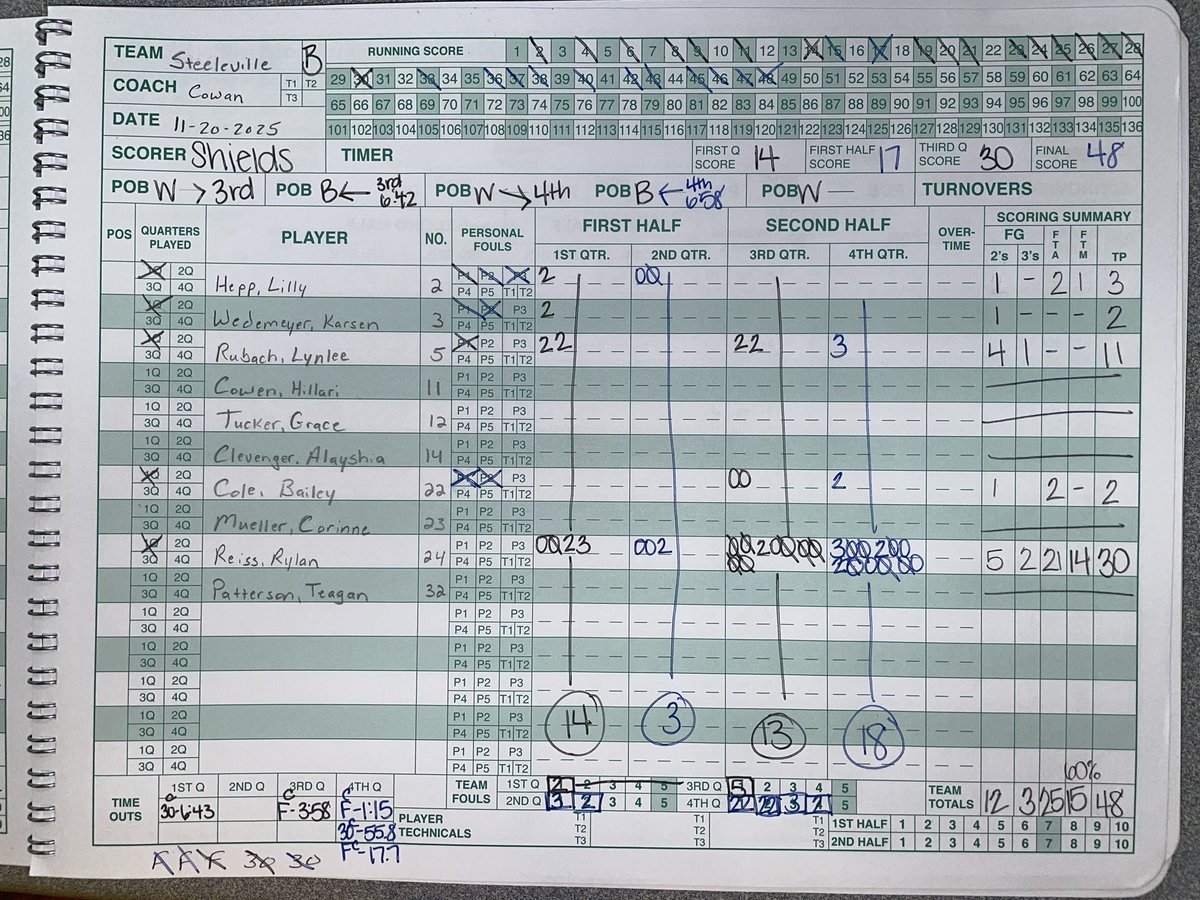 TEAM Steeleville B RUNNING SCORE 1 2 3 4 5 6 7 8 9 10 11 12 13 14 15 16 17 18 19 20 21 22 23 24 25 26 27 28
29 30 31 32 33 34 35 36 37 38 39 40 41 42 43 44 45 46 47 48 49 50 51 52 53 54 55 56 57 58 59 60 61 62 63 64
COACH Cowan T1 T2 T3
65 66 67 68 69 70 71 72 73 74 75 76 77 78 79 80 81 82 83 84 85 86 87 88 89 90 91 92 93 94 95 96 97 98 99 100
DATE 11-20-2025
101 102 103 104 105 106 107 108 109 110 111 112 113 114 115 116 117 118 119 120 121 122 123 124 125 126 127 128 129 130 131 132 133 134 135 136
SCORER Shields TIMER FIRST Q SCORE 14 FIRST HALF SCORE 17 THIRD Q SCORE 30 FINAL SCORE 48
POB W → 3rd POB B ← 3rd 6:42 POB W → 4th POB B ← 4th 6:58 POB W — TURNOVERS
POS QUARTERS PLAYED PLAYER NO. PERSONAL FOULS FIRST HALF SECOND HALF OVER-TIME SCORING SUMMARY
1ST QTR. 2ND QTR. 3RD QTR. 4TH QTR. FG 2's 3's FTA FTM TP
1Q 2Q 3Q 4Q Hepp, Lilly 2 P1 P2 P3 P4 P5 T1 T2 2 00 1 - 2 1 3
1Q 2Q 3Q 4Q Wedemeyer, Karsen 3 P1 P2 P3 P4 P5 T1 T2 2 1 - - - 2
1Q 2Q 3Q 4Q Rubach, Lynlee 5 P1 P2 P3 P4 P5 T1 T2 22 22 3 4 1 - - 11
1Q 2Q 3Q 4Q Cowen, Hillari 11 P1 P2 P3 P4 P5 T1 T2
1Q 2Q 3Q 4Q Tucker, Grace 12 P1 P2 P3 P4 P5 T1 T2
1Q 2Q 3Q 4Q Clevenger, Alayshia 14 P1 P2 P3 P4 P5 T1 T2
1Q 2Q 3Q 4Q Cole, Bailey 22 P1 P2 P3 P4 P5 T1 T2 00 2 1 2 - 2
1Q 2Q 3Q 4Q Mueller, Corinne 23 P1 P2 P3 P4 P5 T1 T2
1Q 2Q 3Q 4Q Reiss, Rylan 24 P1 P2 P3 P4 P5 T1 T2 0023 002 5 2 21 14 30
1Q 2Q 3Q 4Q Patterson, Teagan 32 P1 P2 P3 P4 P5 T1 T2
1Q 2Q 3Q 4Q P1 P2 P3 P4 P5 T1 T2
1Q 2Q 3Q 4Q P1 P2 P3 P4 P5 T1 T2
1Q 2Q 3Q 4Q P1 P2 P3 P4 P5 T1 T2
1Q 2Q 3Q 4Q P1 P2 P3 P4 P5 T1 T2 14 3 13 18
1Q 2Q 3Q 4Q P1 P2 P3 P4 P5 T1 T2 60%
TIME OUTS 1ST Q 2ND Q 3RD Q 4TH Q TEAM FOULS 1ST Q 2 3 4 5 3RD Q 2 3 4 5 TEAM TOTALS 12 3 25 15 48
30-6:43 F-3:58 F-1:15 2ND Q 3 4 5 4TH Q 5
30-55.8 PLAYER TECHNICALS T1 T1 T1 1ST HALF 1 2 3 4 5 6 7 8 9 10
F-17.7 T2 T2 T2 T3 T3 T3 2ND HALF 1 2 3 4 5 6 7 8 9 10
30 30